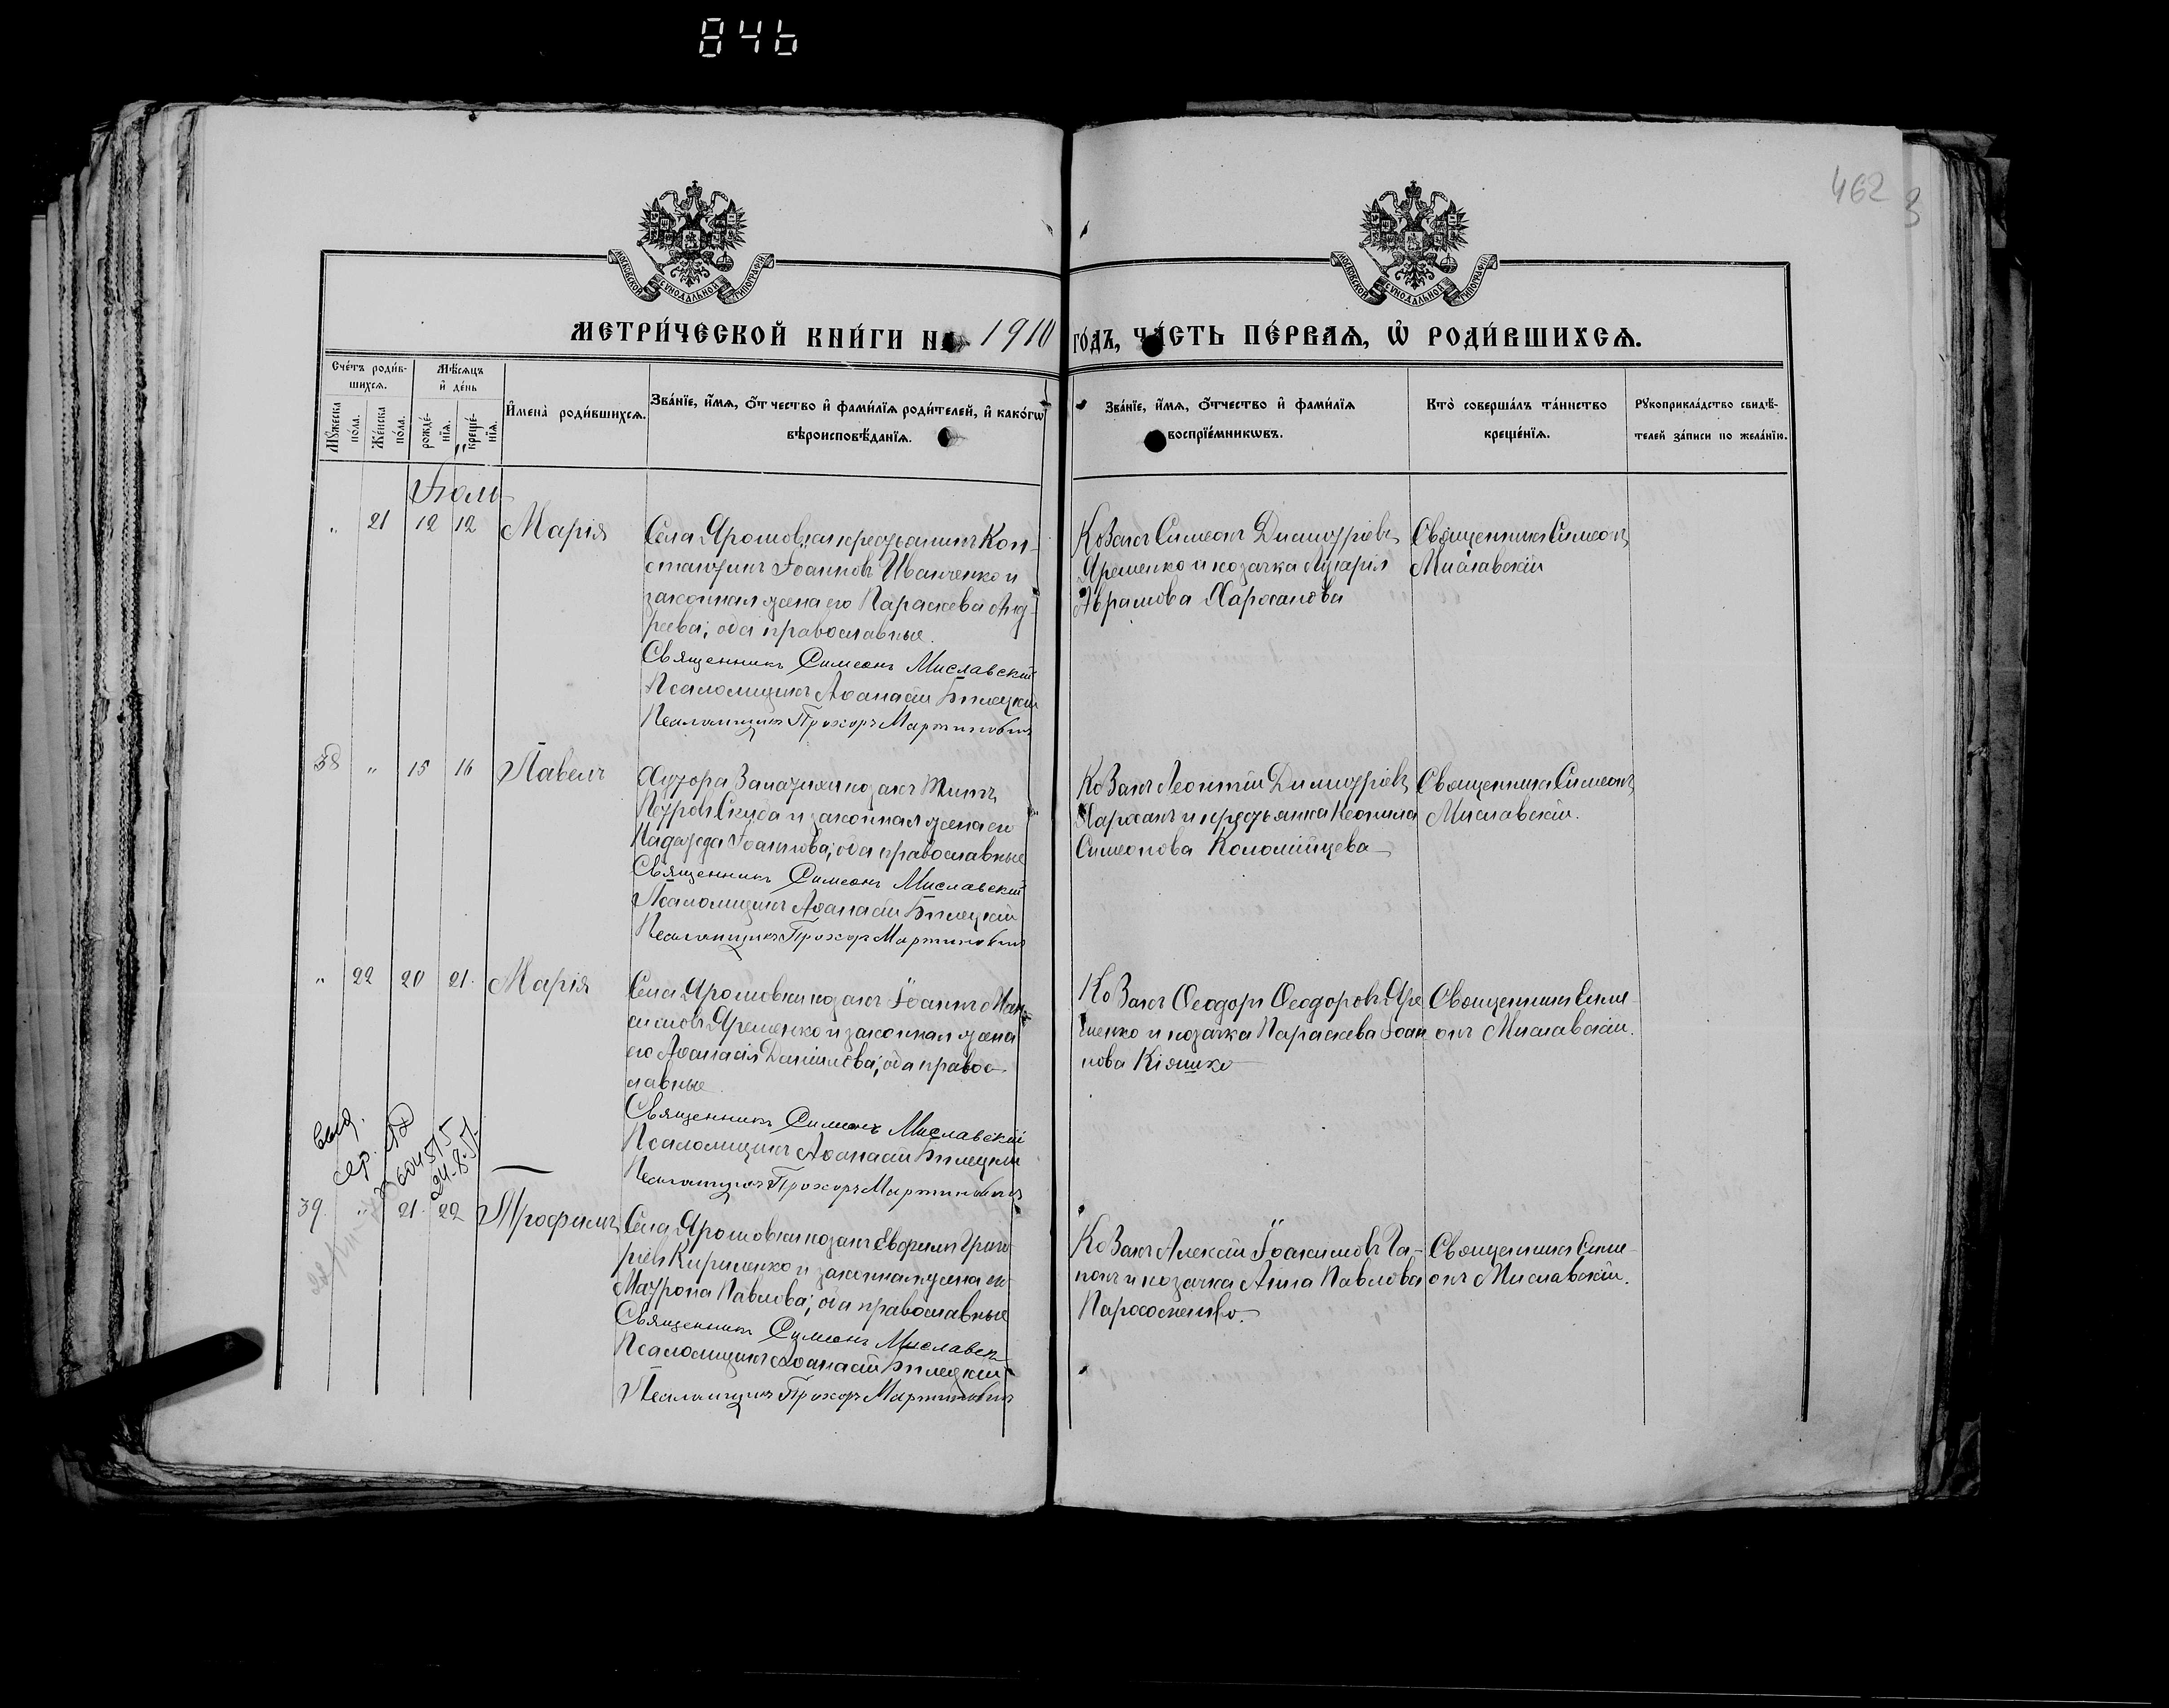 846
462
3
МОСКОВСКОЙ СѴНОДАЛЬНОЙ ТИПОГРАФІИ
МОСКОВСКОЙ СѴНОДАЛЬНОЙ ТИПОГРАФІИ
МЕТРИ́ЧЕСКОЙ КНИ́ГИ НА 1910 ГО́ДЪ, ЧА́СТЬ ПЕ́РВАѦ, Ѡ҆ РОДИ́ВШИХСѦ.
Сче́тъ роди́в-
шихсѧ.
Мѣ́сѧцъ
и҆ де́нь
Мꙋ́жеска
по́ла.
Же́нска
по́ла.
рожде́-
нїѧ.
креще́-
нїѧ.
И҆мена̀ роди́вшихсѧ.
Зва́нїе, и҆́мѧ, ѻ҆́тчество и҆ фами́лїѧ роди́телей, и҆ како́гѡ
вѣроисповѣ́данїѧ.
Зва́нїе, и҆́мѧ, ѻ҆́тчество и҆ фами́лїѧ
воспрїе́мникѡвъ.
Кто̀ соверша́лъ та́инство
креще́нїѧ.
Рꙋкоприкла́дство свидѣ́-
телей за́писи по жела́нїю.
" 21 12 12 Марія
Села Ярошовки крестьянинъ Кон-
стантинъ Іоанновъ Иванченко и
законная жена его Параскева Анд-
реева; оба православные.
Священникъ Симеонъ Миславскій
Псаломщикъ Аѳанасій Билецкій
Псаломщикъ Прохоръ Мартиновичъ
Козакъ Симеонъ Димитріевъ
Яременко и козачка Агарія
Аврамова
Священникъ Симеонъ
Миславскій
38 " 15 16 Павелъ
Хутора козакъ Титъ
Петровъ Скуба и законная жена его
Надежда Іоаннова; оба православные
Священникъ Симеонъ Миславскій
Псаломщикъ Аѳанасій Билецкій
Псаломщикъ Прохоръ Мартиновичъ
Козакъ Леонтій Димитріевъ
и крестьянка Неонила
Симеонова Коломійцева
Священникъ Симеонъ
Миславскій.
" 22 20 21. Марія
Села Ярошовки козакъ Іоаннъ Мак-
симовъ Яременко и законная жена
его Аѳанасія Даніилева; оба правос-
лавные.
Священникъ Симеонъ Миславскій
Псаломщикъ Аѳанасій Билецкій
Псаломщикъ Прохоръ Мартиновичъ
Козакъ Ѳеодоръ Ѳеодоровъ Яре
менко и козачка Параскева Іоан
нова Кіяшко
Священникъ Симе-
онъ Миславскій.
выд.
604575
24.8.51.
39. " 21. 22 Трофимъ
Села Ярошовки козакъ Евфимъ Григо
ріевъ Кириленко и законная жена его
Матрона Павлова; оба православные
Священникъ Симеонъ Миславскій
Псаломщикъ Аѳанасій Билецкій
Псаломщикъ Прохоръ Мартиновичъ
Козакъ Алексій Іоакимовъ Га-
понъ и козачка Анна Павлова
Священникъ Симе-
онъ Миславскій.